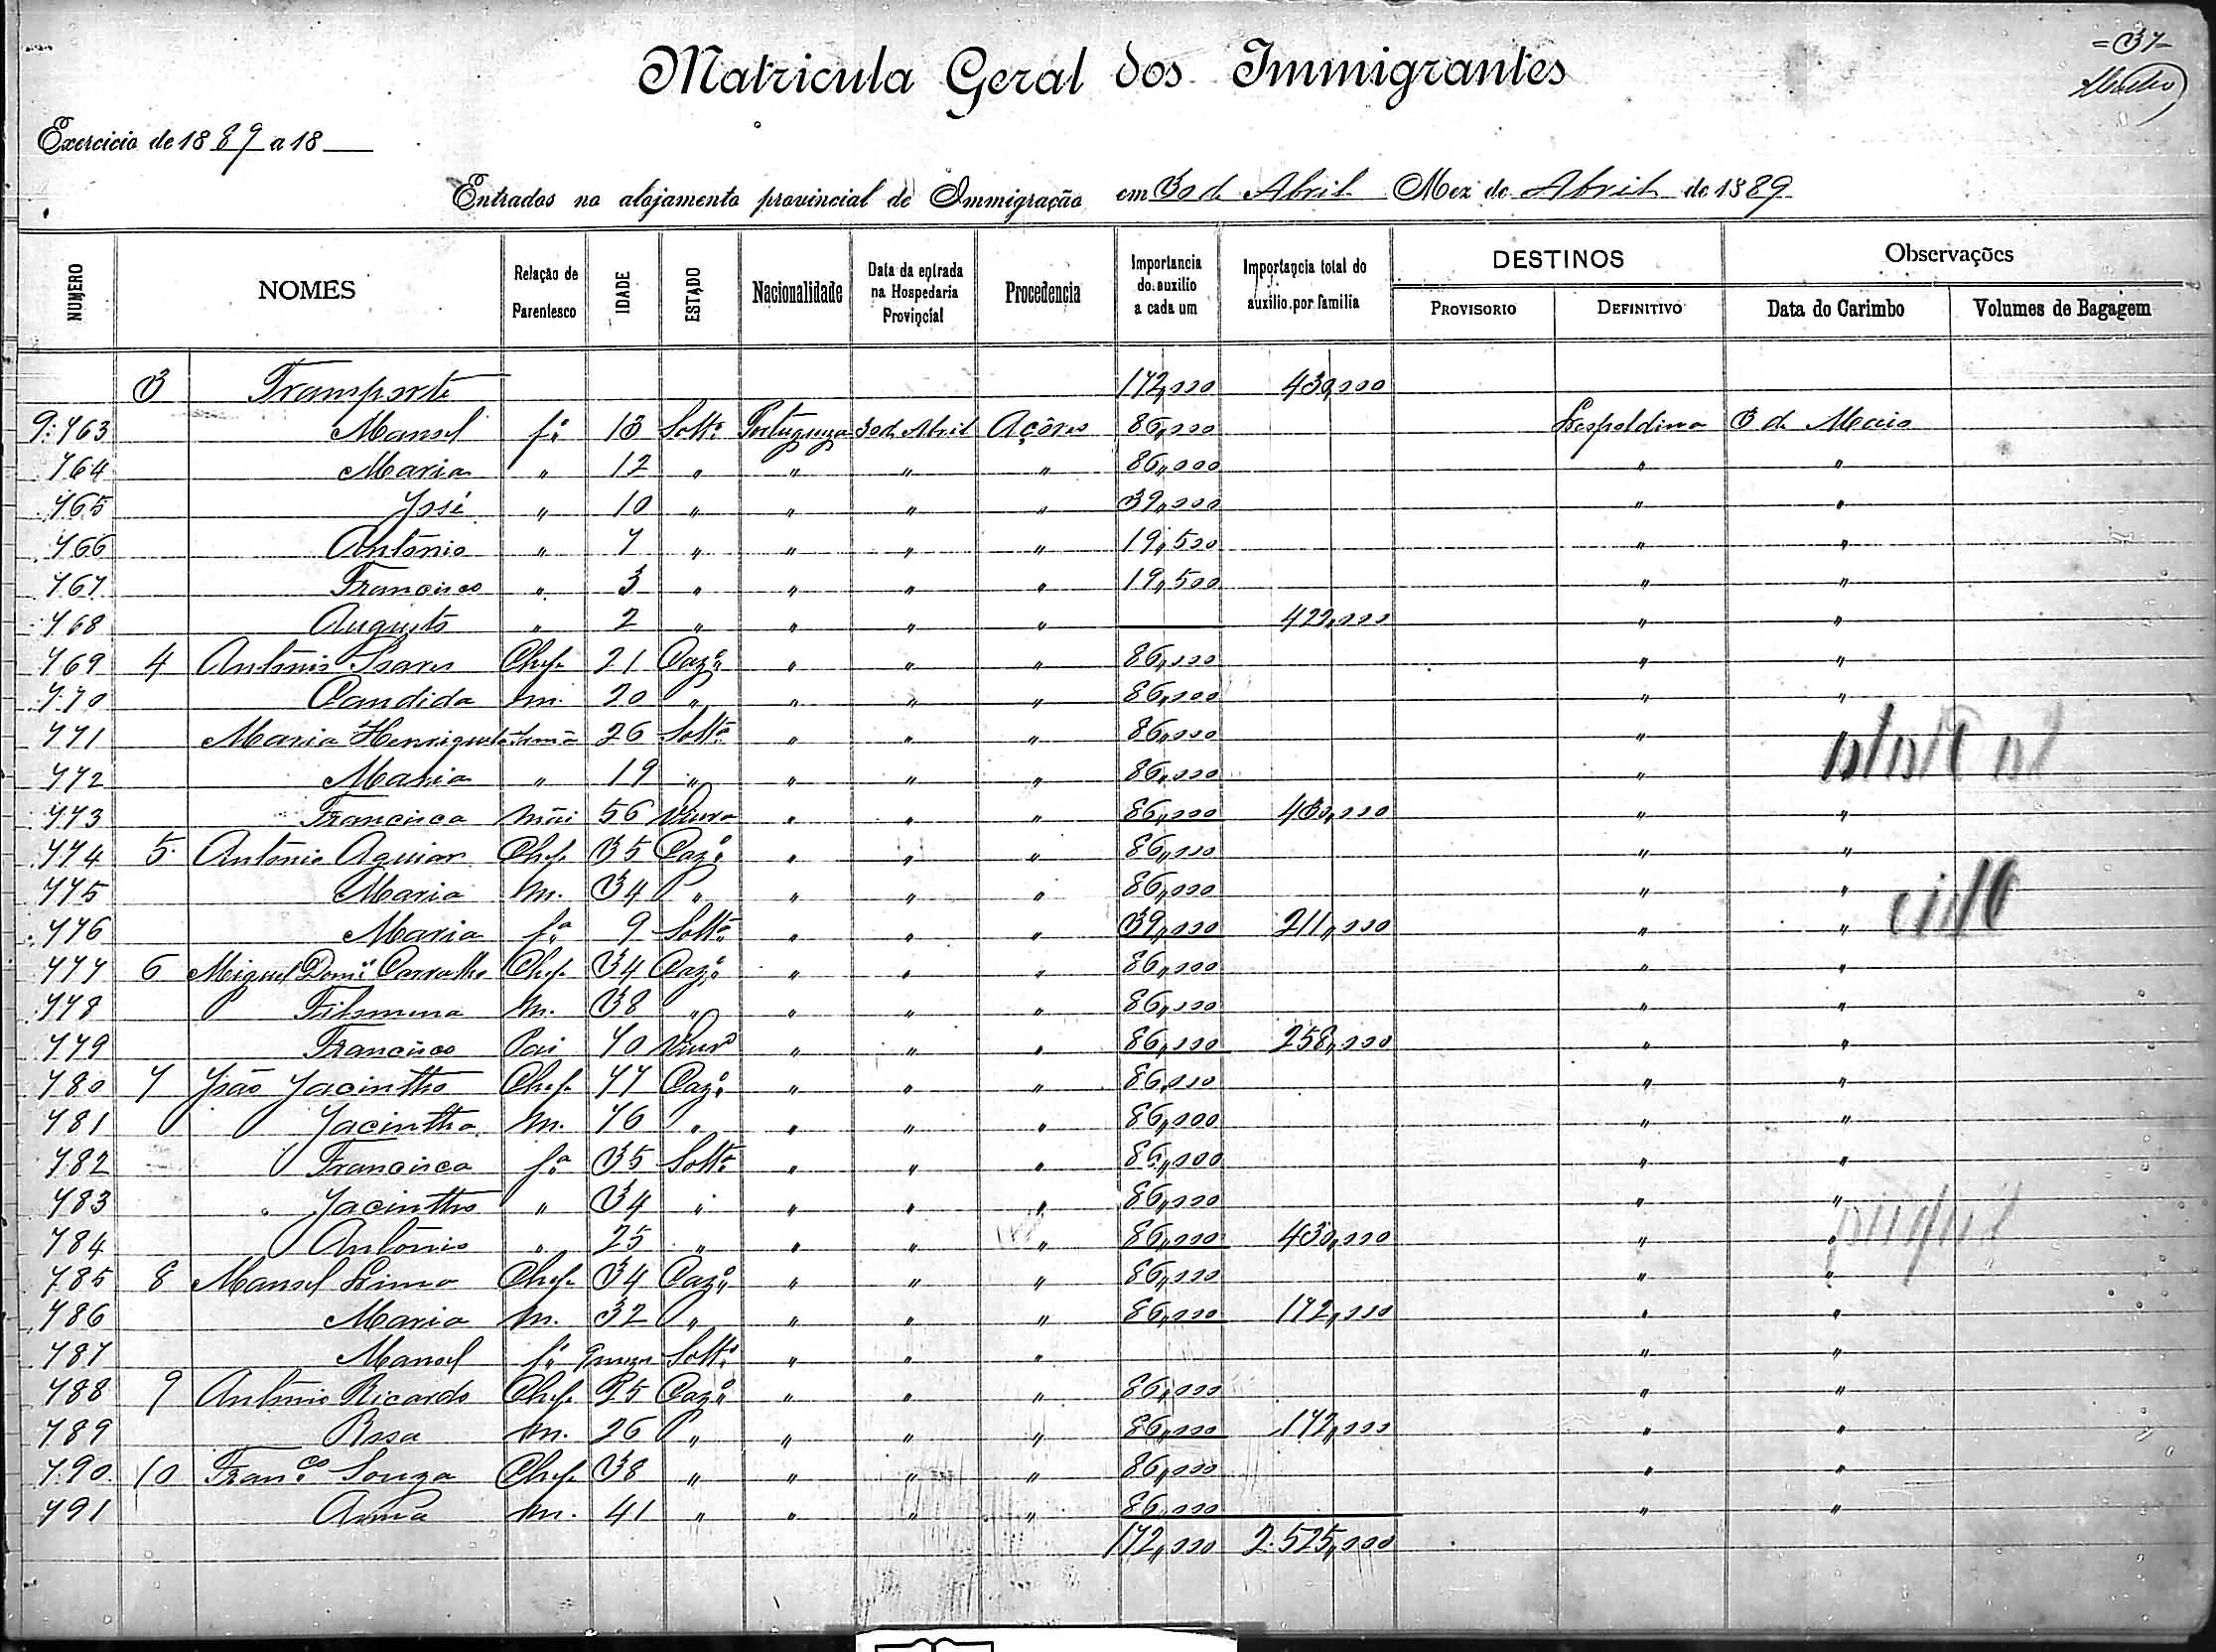 =37=
Matricula Geral dos Immigrantes
Exercicio de 1889 a 18
Entrados no alojamento provincial de Immigração em 30 de Abril Mez de Abril de 1889
NUMERO NOMES Relação de Parentesco IDADE ESTADO Nacionalidade Data da entrada na Hospedaria Provincial Procedencia Importancia do auxilio a cada um Importancia total do auxilio por familia DESTINOS PROVISORIO DEFINITIVO Observações Data do Carimbo Volumes de Bagagem
3 Transporte 172,000 430,000
9:763 Manoel fo 13 Solto Portugueza 30 de Abril Açôres 86,000 Leopoldina 3 de Maio
764 Maria " 12 " " " " 86,000 " "
765 José " 10 " " " " 39,000 " "
766 Antônio " 7 " " " " 19,500 " "
767 Francisco " 3 " " " " 19,500 " "
768 Augusto " 2 " " " " 422,000 " "
769 4 Antônio Soares Chefe 21 Cazo " " " 86,000 " "
770 Candida m. 20 " " " " 86,000 " "
771 Maria Henriqueta Irmã 26 Solta " " " 86,000 " "
772 Maria " 19 " " " " 86,000 " "
773 Francisca mãi 56 Viuva " " " 86,000 430,000 " "
774 5 Antônio Aguiar Chefe 35 Cazo " " " 86,000 " "
775 Maria m. 34 " " " " 86,000 " "
776 Maria fa 9 Solta " " " 39,000 211,000 " "
777 6 Miguel Domos Carvalho Chefe 34 Cazo " " " 86,000 " "
778 Filomena m. 38 " " " " 86,000 " "
779 Francisco Pai 70 Viuvo " " " 86,000 258,000 " "
780 7 João Jacintho Chefe 77 Cazo " " " 86,000 " "
781 Jacintha m. 76 " " " " 86,000 " "
782 Francisca fa 35 Solta " " " 86,000 " "
783 Jacintho " 34 " " " " 86,000 " "
784 Antônio " 25 " " " " 86,000 430,000 " "
785 8 Manoel Lima Chefe 34 Cazo " " " 86,000 " "
786 Maria m. 32 " " " " 86,000 172,000 " "
787 Manoel fo Solto " " " " "
788 9 Antônio Ricardo Chefe 25 Cazo " " " 86,000 " "
789 Rosa m. 26 " " " " 86,000 172,000 " "
790 10 Franco Souza Chefe 38 " " " " 86,000 " "
791 Anna m. 41 " " " " 86,000 " "
172,000 2.525,000